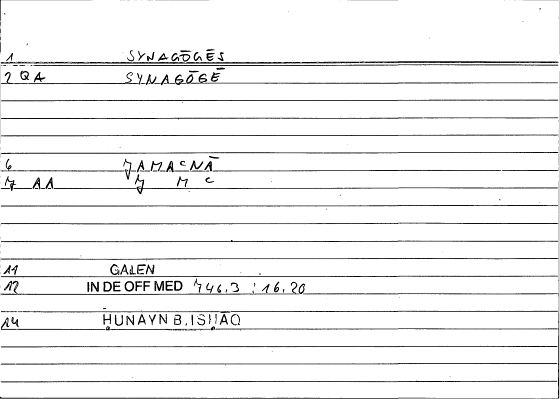 1 SYNAGŌGĒS
2 QA SYNAGŌGĒ
6 JAMAcNĀ
7 AA J M c
11 GALEN
12 IN DE OFF MED 746.3 : 16.20
14 ḤUNAYN B. ISḤĀQ